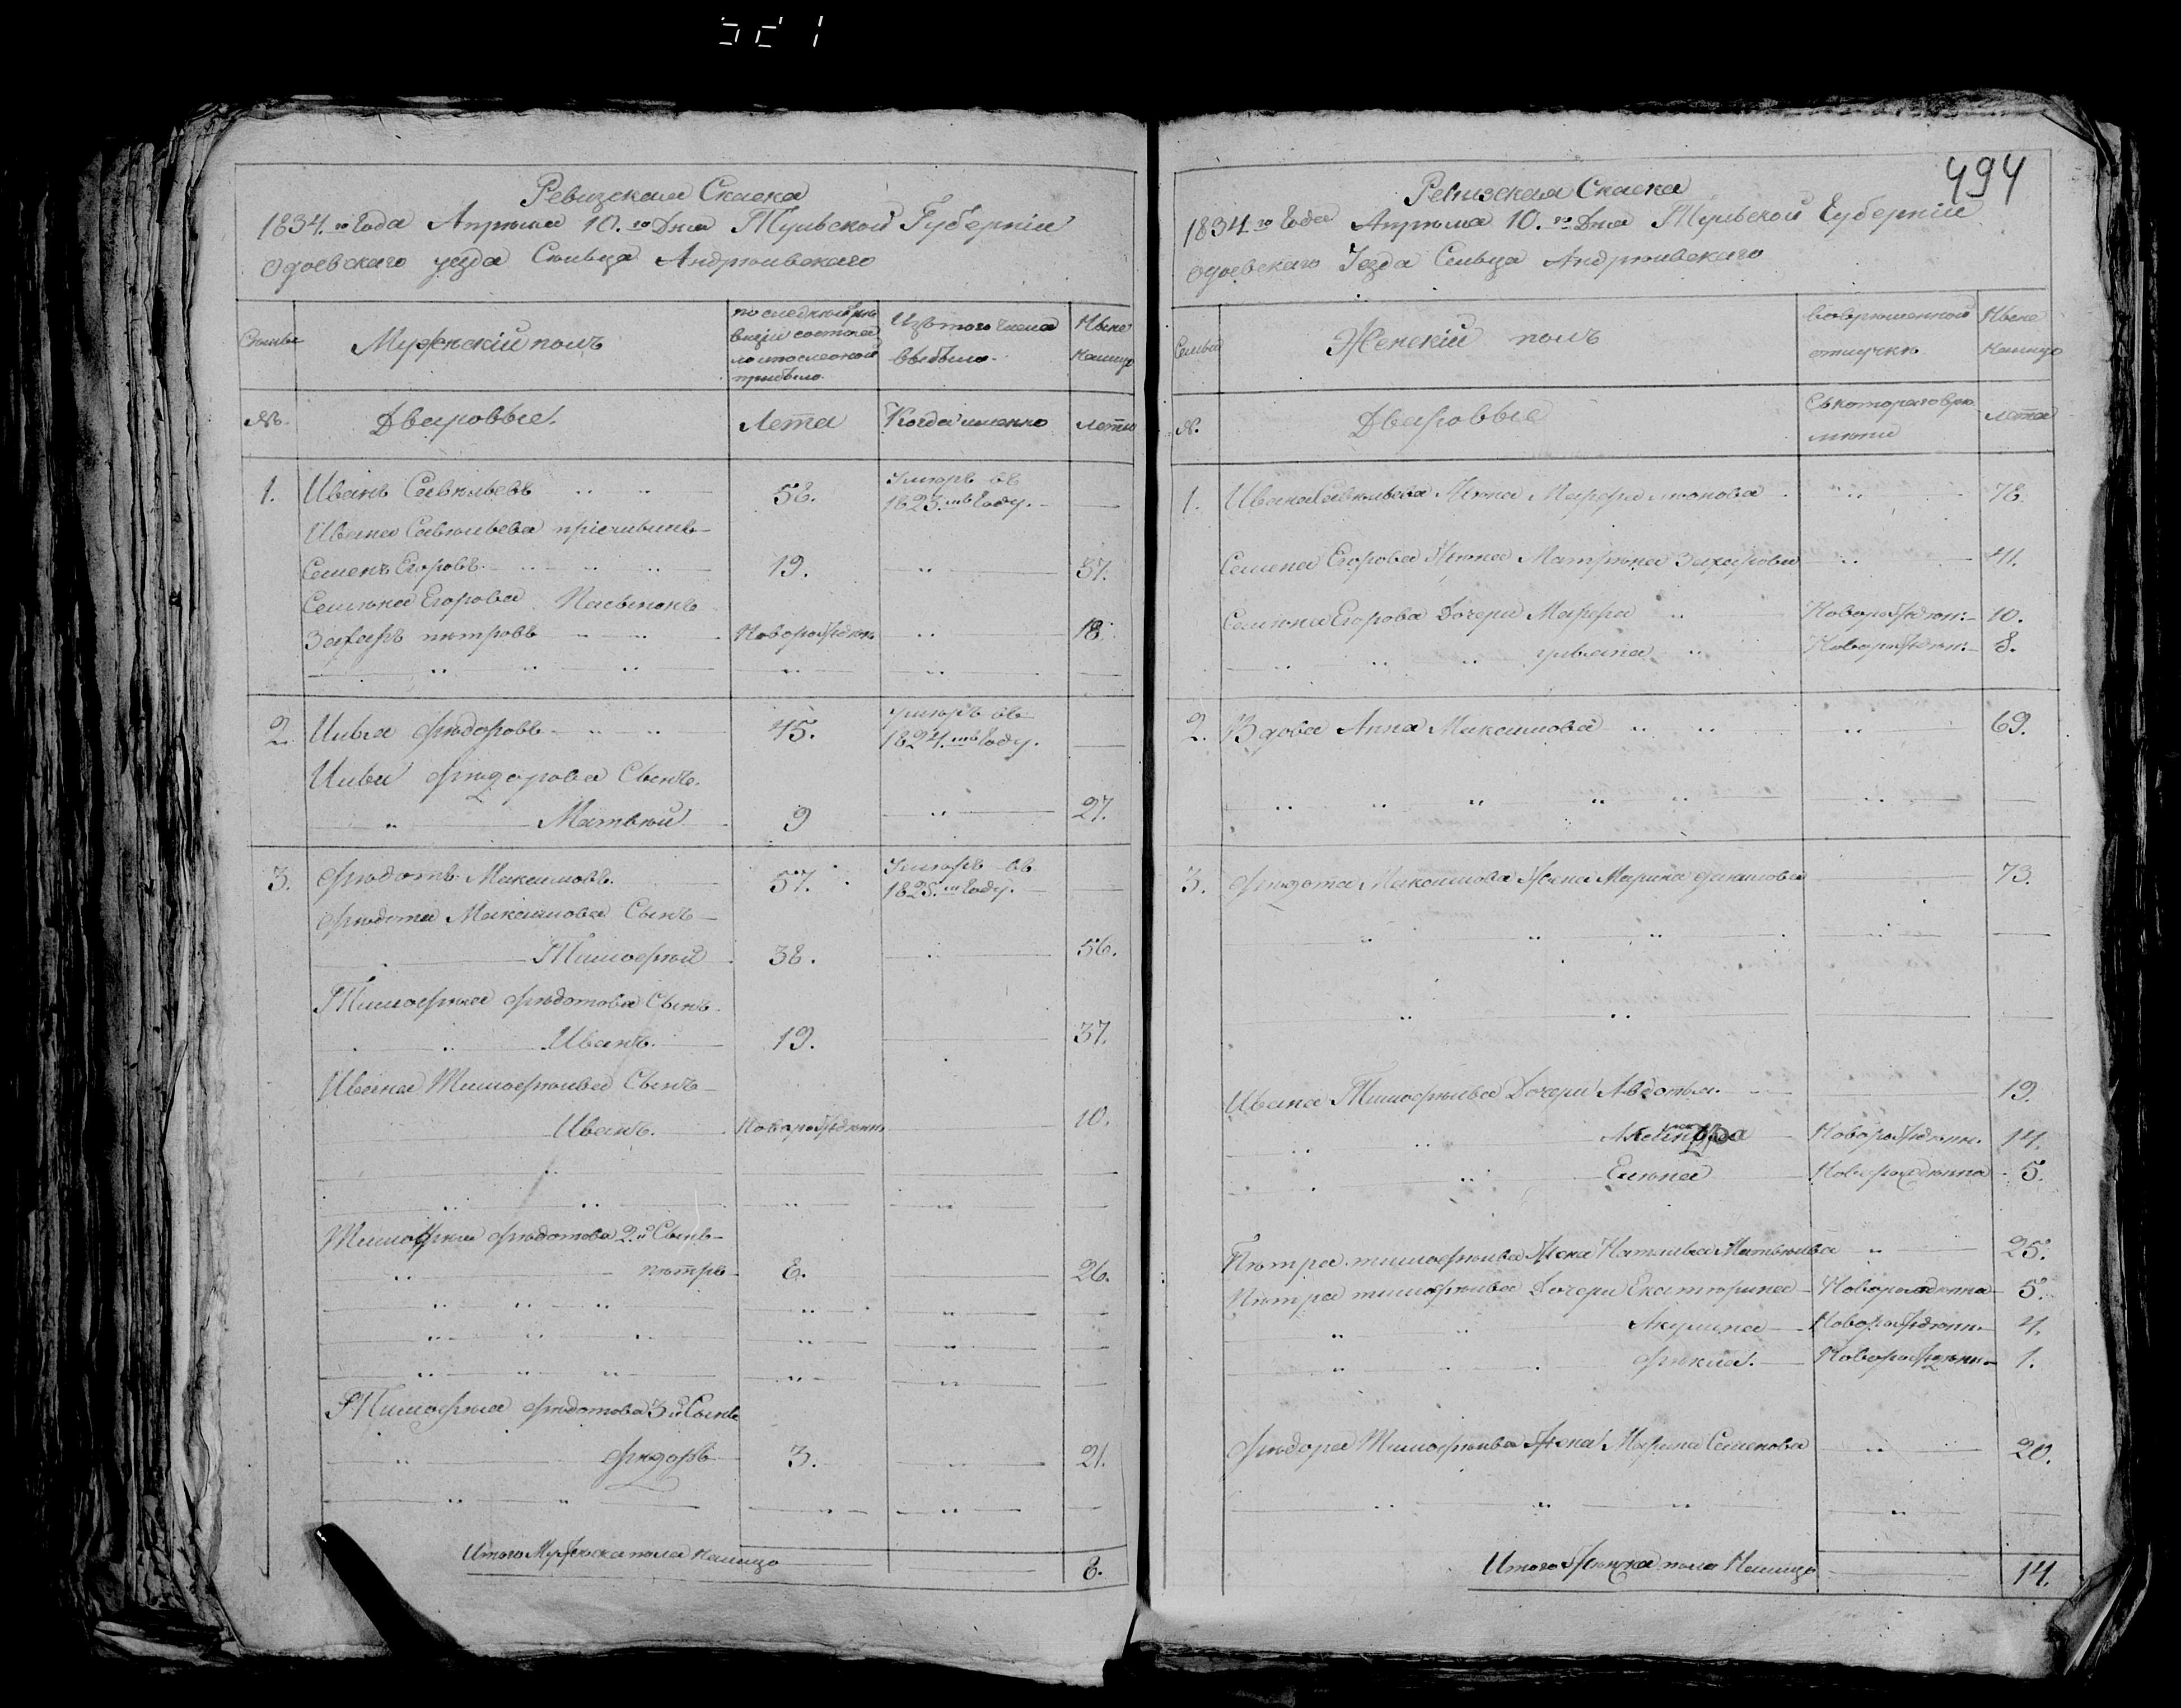 521
Ревизская Скаска
1834.го Года Апреля 10.го Дня Тульской Губернiи
Одоевскаго уезда Сельца Андреевскаго
Семьи
Мужескiй полъ
по следней ре
визiи состоя
ло и после оной
прибыло.
Изъ того числа
выбыло.
Ныне
налицо
№.
Дворовые.
Лета
Когда именно
лета
1. Иванъ Савельевъ 58. Умеръ въ
1825.мъ Году.
Ивана Савельева
Семенъ Егоровъ. 19. 37.
Семена Егорова
Захаръ петровъ Новорожден 18.
2. Илья Федоровъ 45. умеръ въ
1824.мъ Году.
Ильи Федорова Сынъ.
Матвей 9 27.
3. Федотъ Максимовъ. 57. Умеръ въ
1825.м Году.
Федота Максимова Сынъ
Тимофей 38. 56.
Тимофея Федотова Сынъ
Иванъ. 19. 37.
Ивана Тимофеева Сынъ
Иванъ. Новорожденн 10.
Тимофея Федотова 2.й Сынъ
петръ 8. 26.
Тимофея Федотова 3й Сынъ
Федоръ 3. 21.
Итого Мужеска пола Налицо 8.
494
Ревизская Скаска
1834го Года Апреля 10.го Дня Тульской Губернiи
одоевскаго Уезда Сельца Андреевскаго
Семьи
Женскiй полъ
Во временной
отлучке
Ныне
налицо
№.
Дворовые
Съ котораго вре
мени
лета
1. Ивана Савельева Жена Марфа 76.
Семена Егорова Жена Матрена Захарова 41.
Семена Егорова Дочери Марфа Новорожден: 10.
ульяна Новорожден: 8.
2. Вдова Анна Максимова 69.
3. Федота Максимова Жена Марина 73.
Ивана Тимофеева Дочери Авдотья. 19.
Новорожденн. 14.
Елена Новорожденна 5.
Петра тимофеева Жена Наталья Матвеева 25.
Петра тимофеева Дочери Екатерина Новорожденна 5.
Акулина Новорожденн. 4.
Фекла. Новорожденн 1.
Федора Тимофеева Жена Марина Семенова 20.
Итого Женска пола Налицо 14.